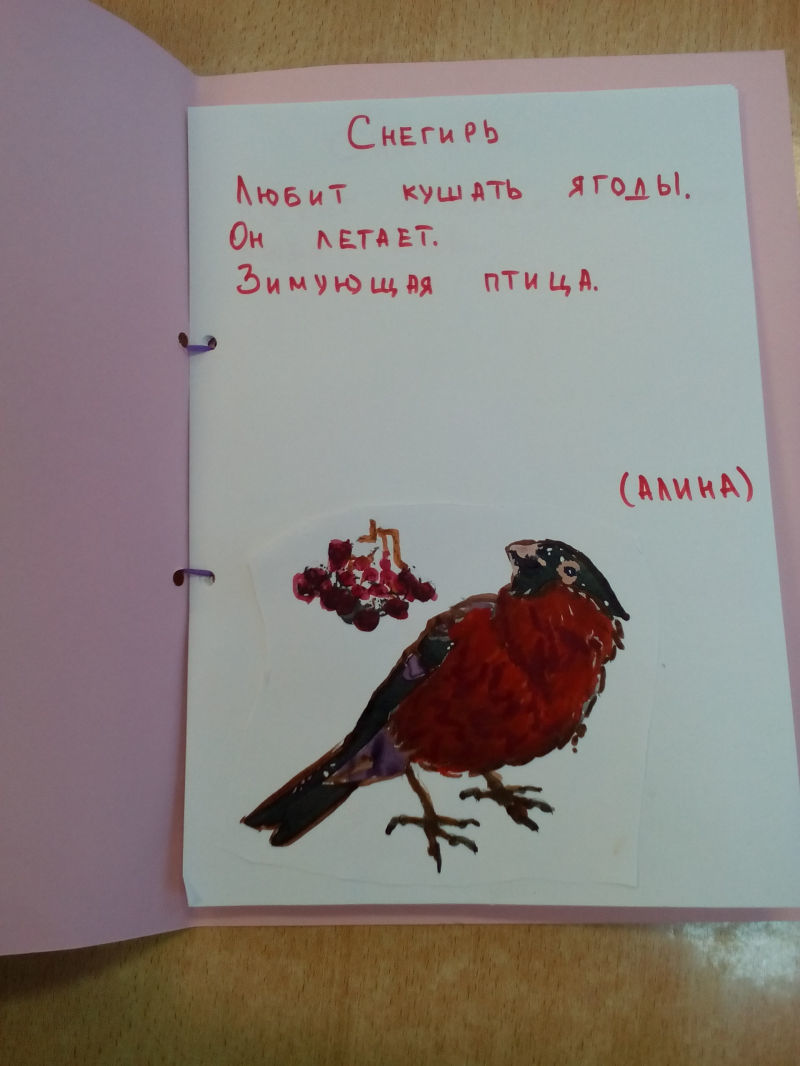 Снегирь
Любит кушать ягоды.
Он летает.
Зимующая птица.
(Алина)